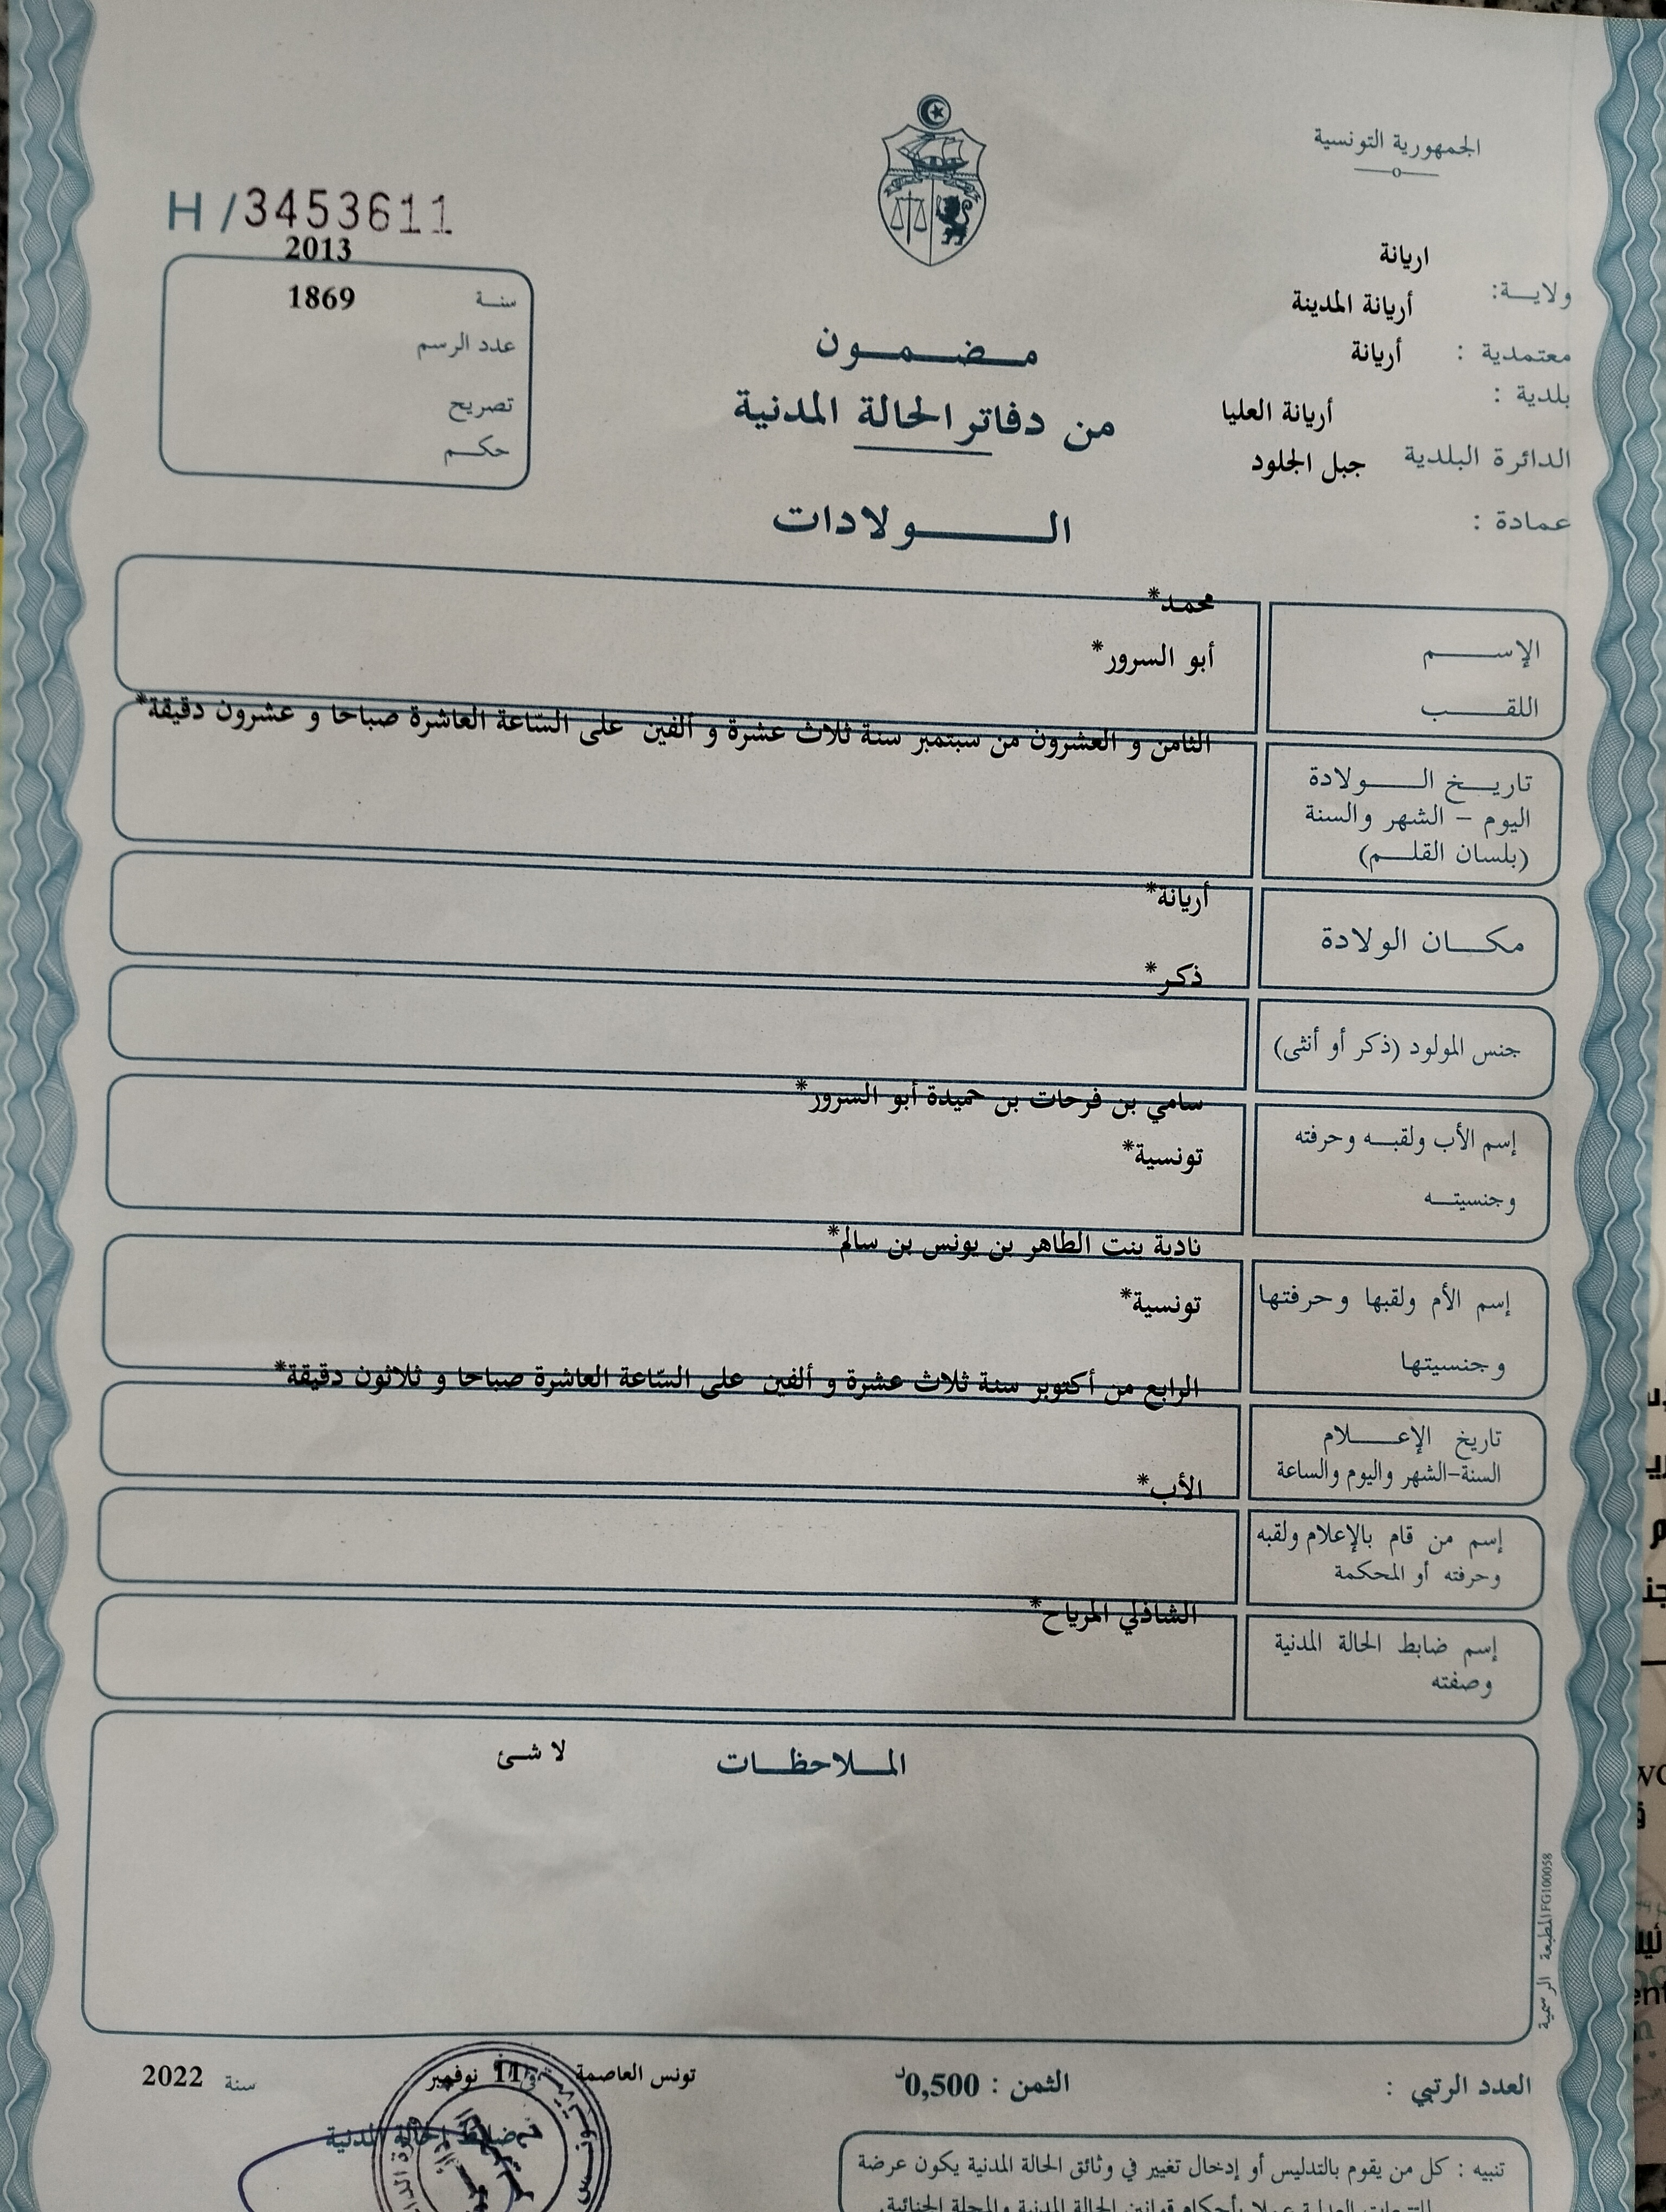 الجمهورية التونسية
H / 3453611
2013
سنة 1869
عدد الرسم
تصريح
حكم
اريانة
ولاية:
أريانة المدينة
معتمدية : أريانة
بلدية :
أريانة العليا
الدائرة البلدية جبل الجلود
عمادة :
مضمون
من دفاتر الحالة المدنية
الولادات
محمد*
الإسم
أبو السرور*
اللقب
الثامن و العشرون من سبتمبر سنة ثلاث عشرة و ألفين على السّاعة العاشرة صباحا و عشرون دقيقة*
تاريخ الولادة
اليوم – الشهر والسنة
(بلسان القلم)
أريانة*
مكان الولادة
ذكر*
جنس المولود (ذكر أو أنثى)
سامي بن فرحات بن حميدة أبو السرور*
إسم الأب ولقبه وحرفته
تونسية*
وجنسيته
نادية بنت الطاهر بن يونس بن سالم*
إسم الأم ولقبها وحرفتها
تونسية*
وجنسيتها
الرابع من أكتوبر سنة ثلاث عشرة و ألفين على السّاعة العاشرة صباحا و ثلاثون دقيقة*
تاريخ الإعلام
السنة-الشهر واليوم والساعة
الأب*
إسم من قام بالإعلام ولقبه
وحرفته أو المحكمة
الشاذلي المرياح*
إسم ضابط الحالة المدنية
وصفته
الملاحظات لا شئ
المطبعة الرسمية FG100058
العدد الرتبي : الثمن : 0,500د
تونس العاصمة في 11 نوفمبر سنة 2022
ضابط الحالة المدنية
تنبيه : كل من يقوم بالتدليس أو إدخال تغيير في وثائق الحالة المدنية يكون عرضة
للتتبعات العدلية عملا بأحكام قوانين الحالة المدنية والمجلة الجنائية.